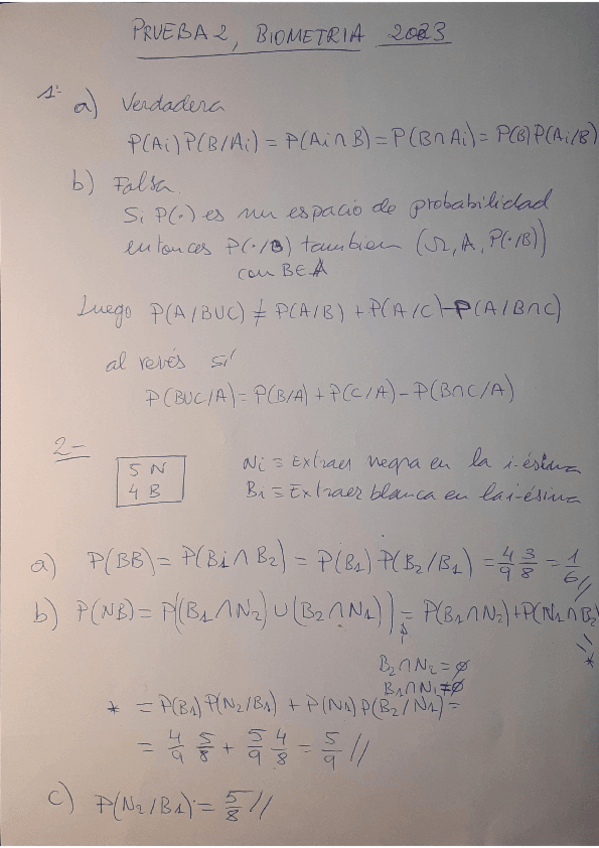 PRUEBA 2, BIOMETRIA 2023
1- a) Verdadera
P(Ai)P(B/Ai) = P(Ai∩B) = P(B∩Ai) = P(B)P(Ai/B)
b) Falsa.
Si P(·) es un espacio de probabilidad
entonces P(·/B) tambien (Ω, A, P(·/B))
con B∈A
Luego P(A/BUC) ≠ P(A/B) + P(A/C) - P(A/B∩C)
al revés sí
P(BUC/A) = P(B/A) + P(C/A) - P(B∩C/A)
2-
5 N
4 B
Ni = Extraer negra en la i-ésima
Bi = Extraer blanca en la i-ésima
a) P(BB) = P(B1∩B2) = P(B1) P(B2/B1) = 4/9 3/8 = 1/6 //
b) P(NB) = P((B1∩N2) U (B2∩N1)) = P(B1∩N2) + P(N1∩B2) =
*
B2∩N2 = ∅
B1∩N1 = ∅
* = P(B1) P(N2/B1) + P(N1) P(B2/N1) =
= 4/9 5/8 + 5/9 4/8 = 5/9 //
c) P(N2/B1) = 5/8 //